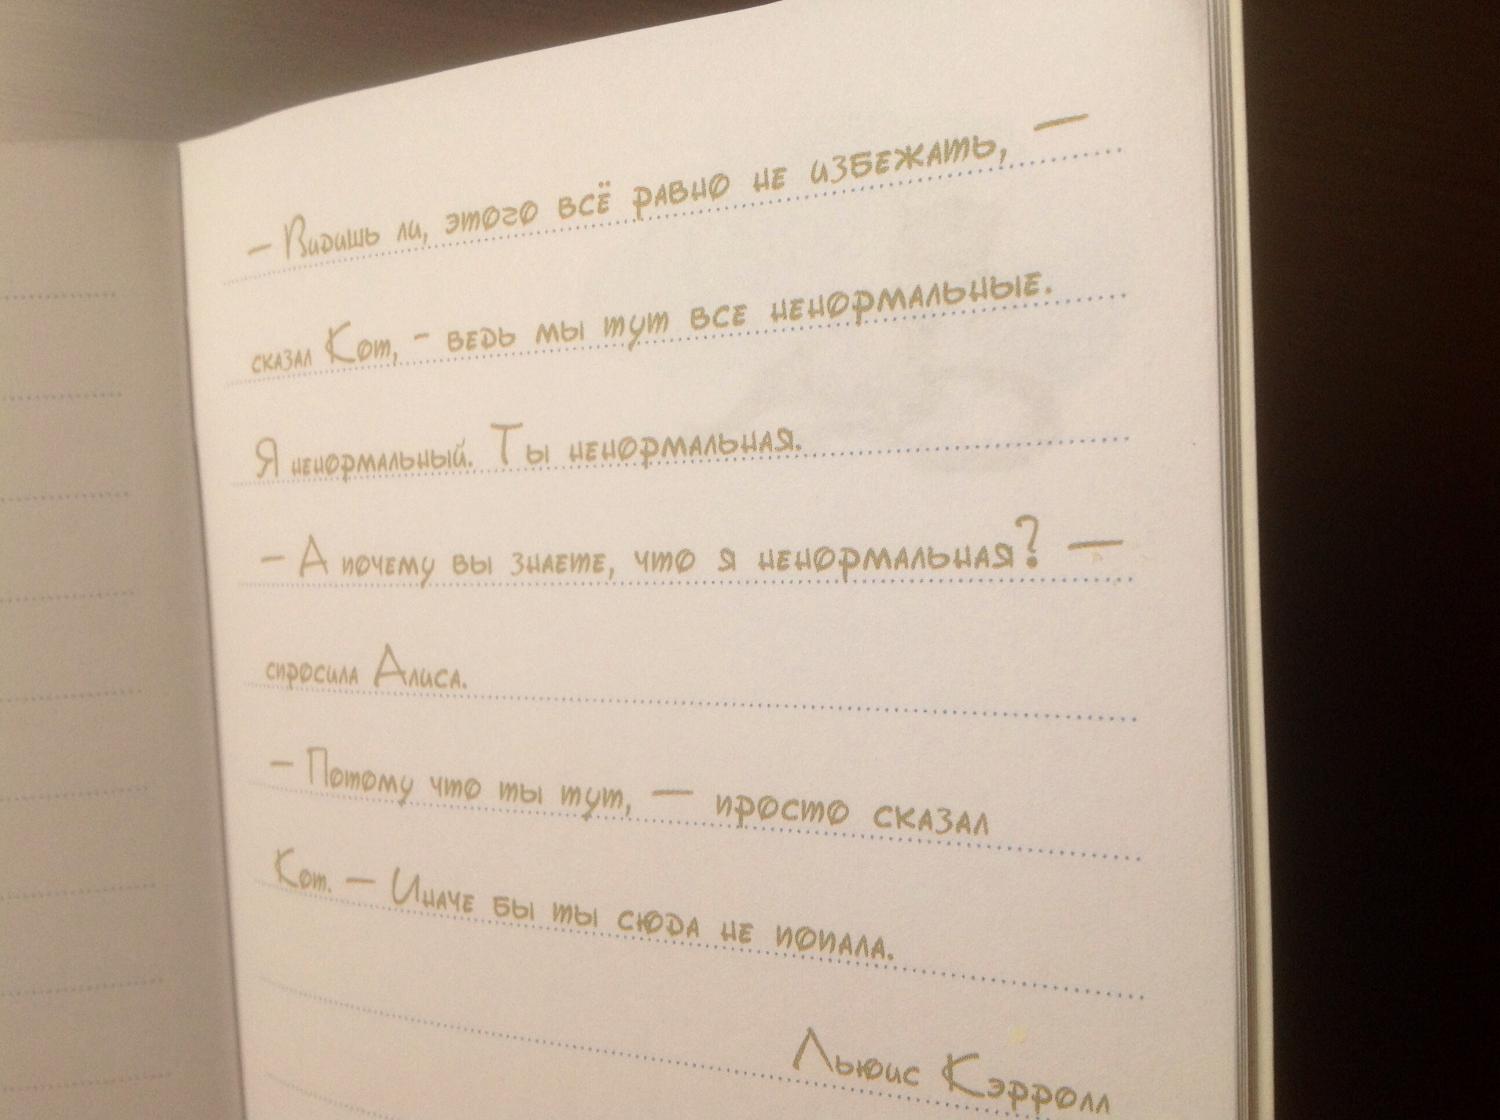 — Видишь ли, этого всё равно не избежать, —
сказал Кот, - ведь мы тут все ненормальные.
Я ненормальный. Ты ненормальная.
— А почему вы знаете, что я ненормальная? —
спросила Алиса.
— Потому что ты тут, — просто сказал
Кот. — Иначе бы ты сюда не попала.
Льюис Кэрролл